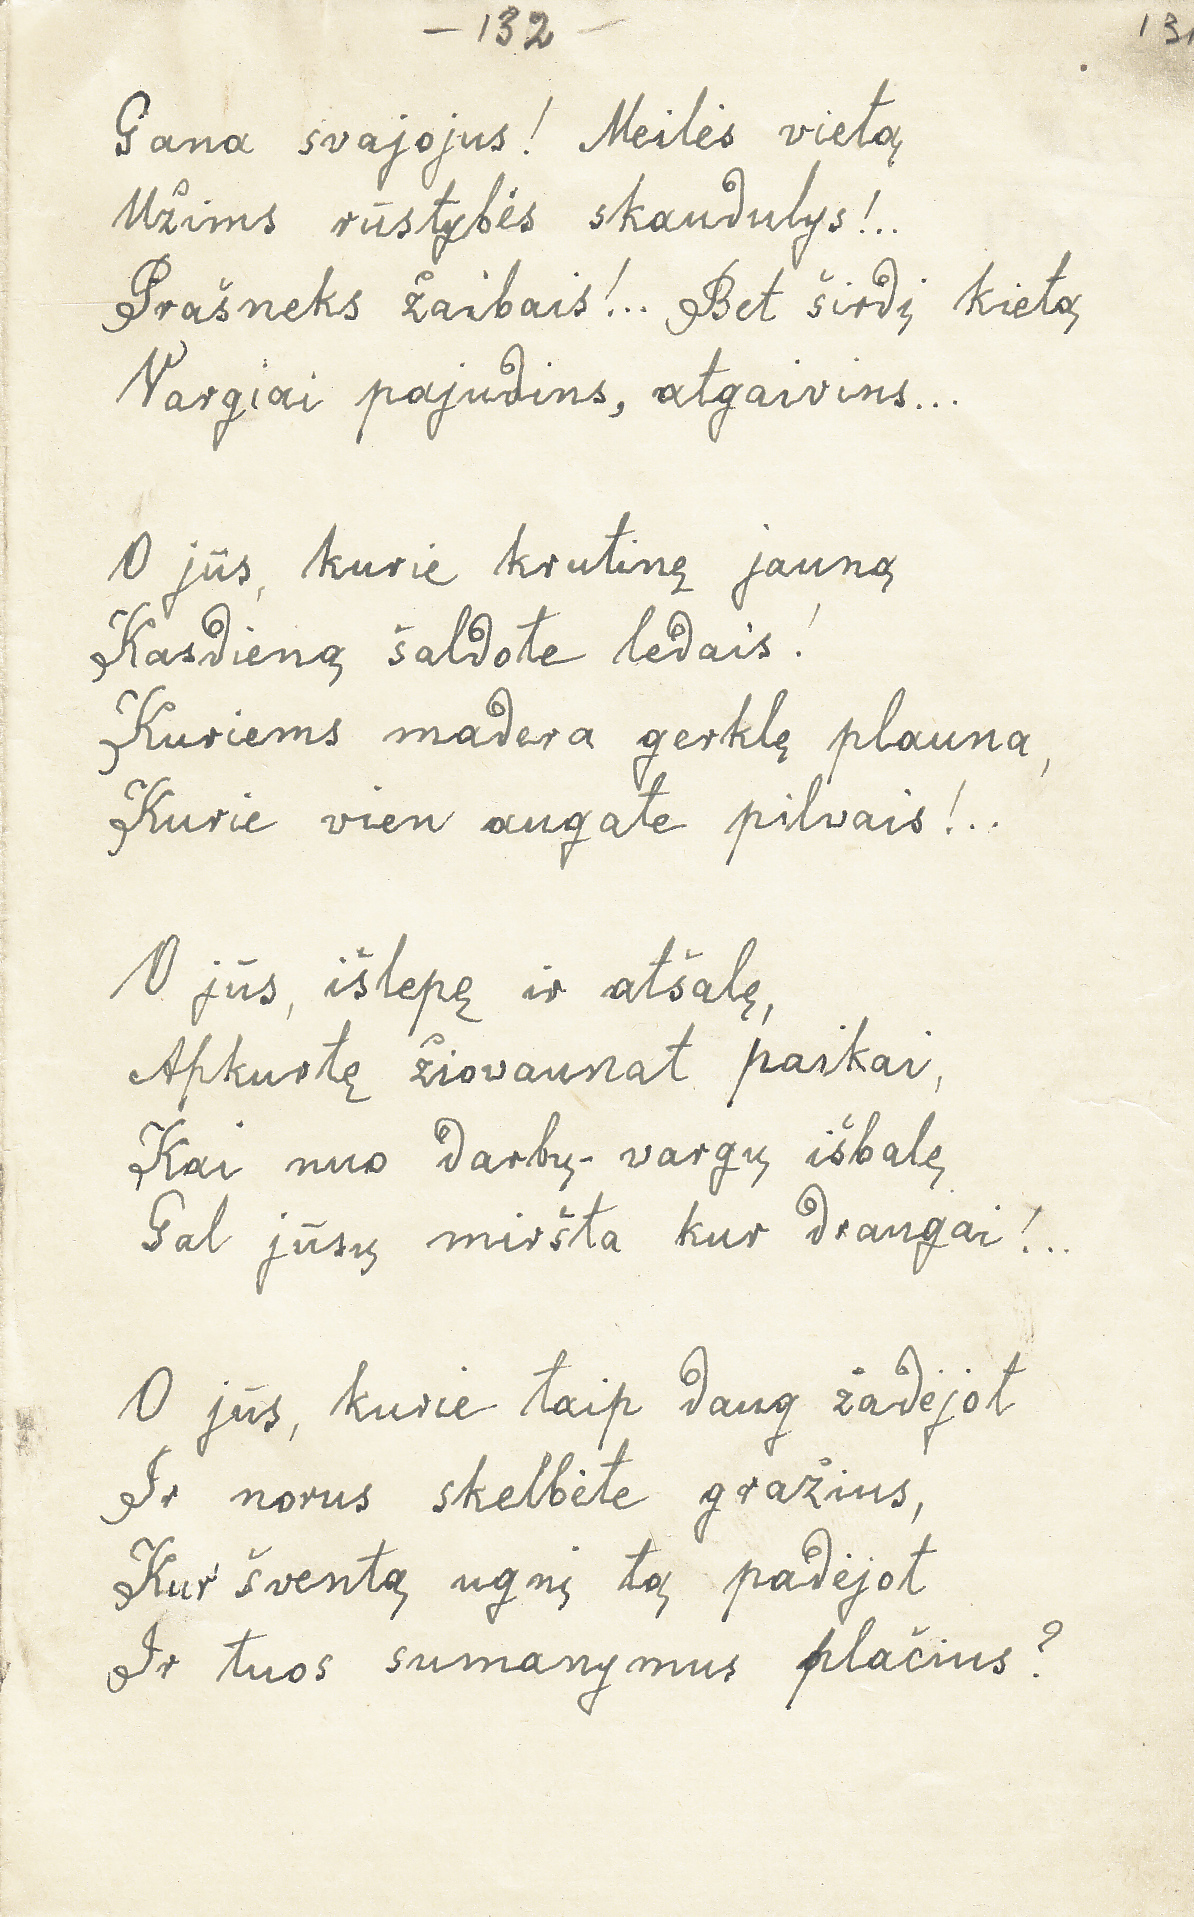 - 132 -
131
Gana svajojus! Meilės vietą
Užims rūstybės skaudulys!..
Prašneks žaibais!.. Bet širdį kietą
Vargiai pajudins, atgaivins...
O jūs, kurie krutinę jauną
Kasdieną šaldote ledais!
Kuriems madera gerklę plauna,
Kurie vien augate pilvais!..
O jūs, išlepę ir atšalę,
Apkurtę žiovaunat paikai,
Kai nuo darbų-vargų išbalę
Gal jūsų miršta kur draugai!..
O jūs, kurie taip daug žadėjot
Ir norus skelbėte gražius,
Kur šventą ugnį tą padėjot
Ir tuos sumanymus plačius?